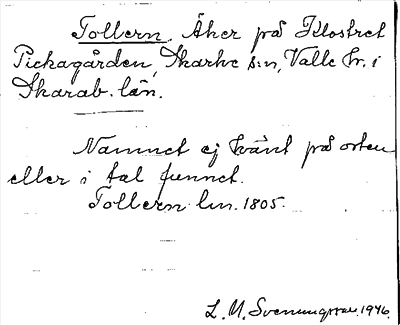 Tollern. Åker på Klostret
Pickagården, Skarke s:n, Valle hr. i
Skarab. län.
Namnet ej känt på orten
eller i tal funnet.
Tollern lm. 1805.
L. M. Svenungsson 1946.